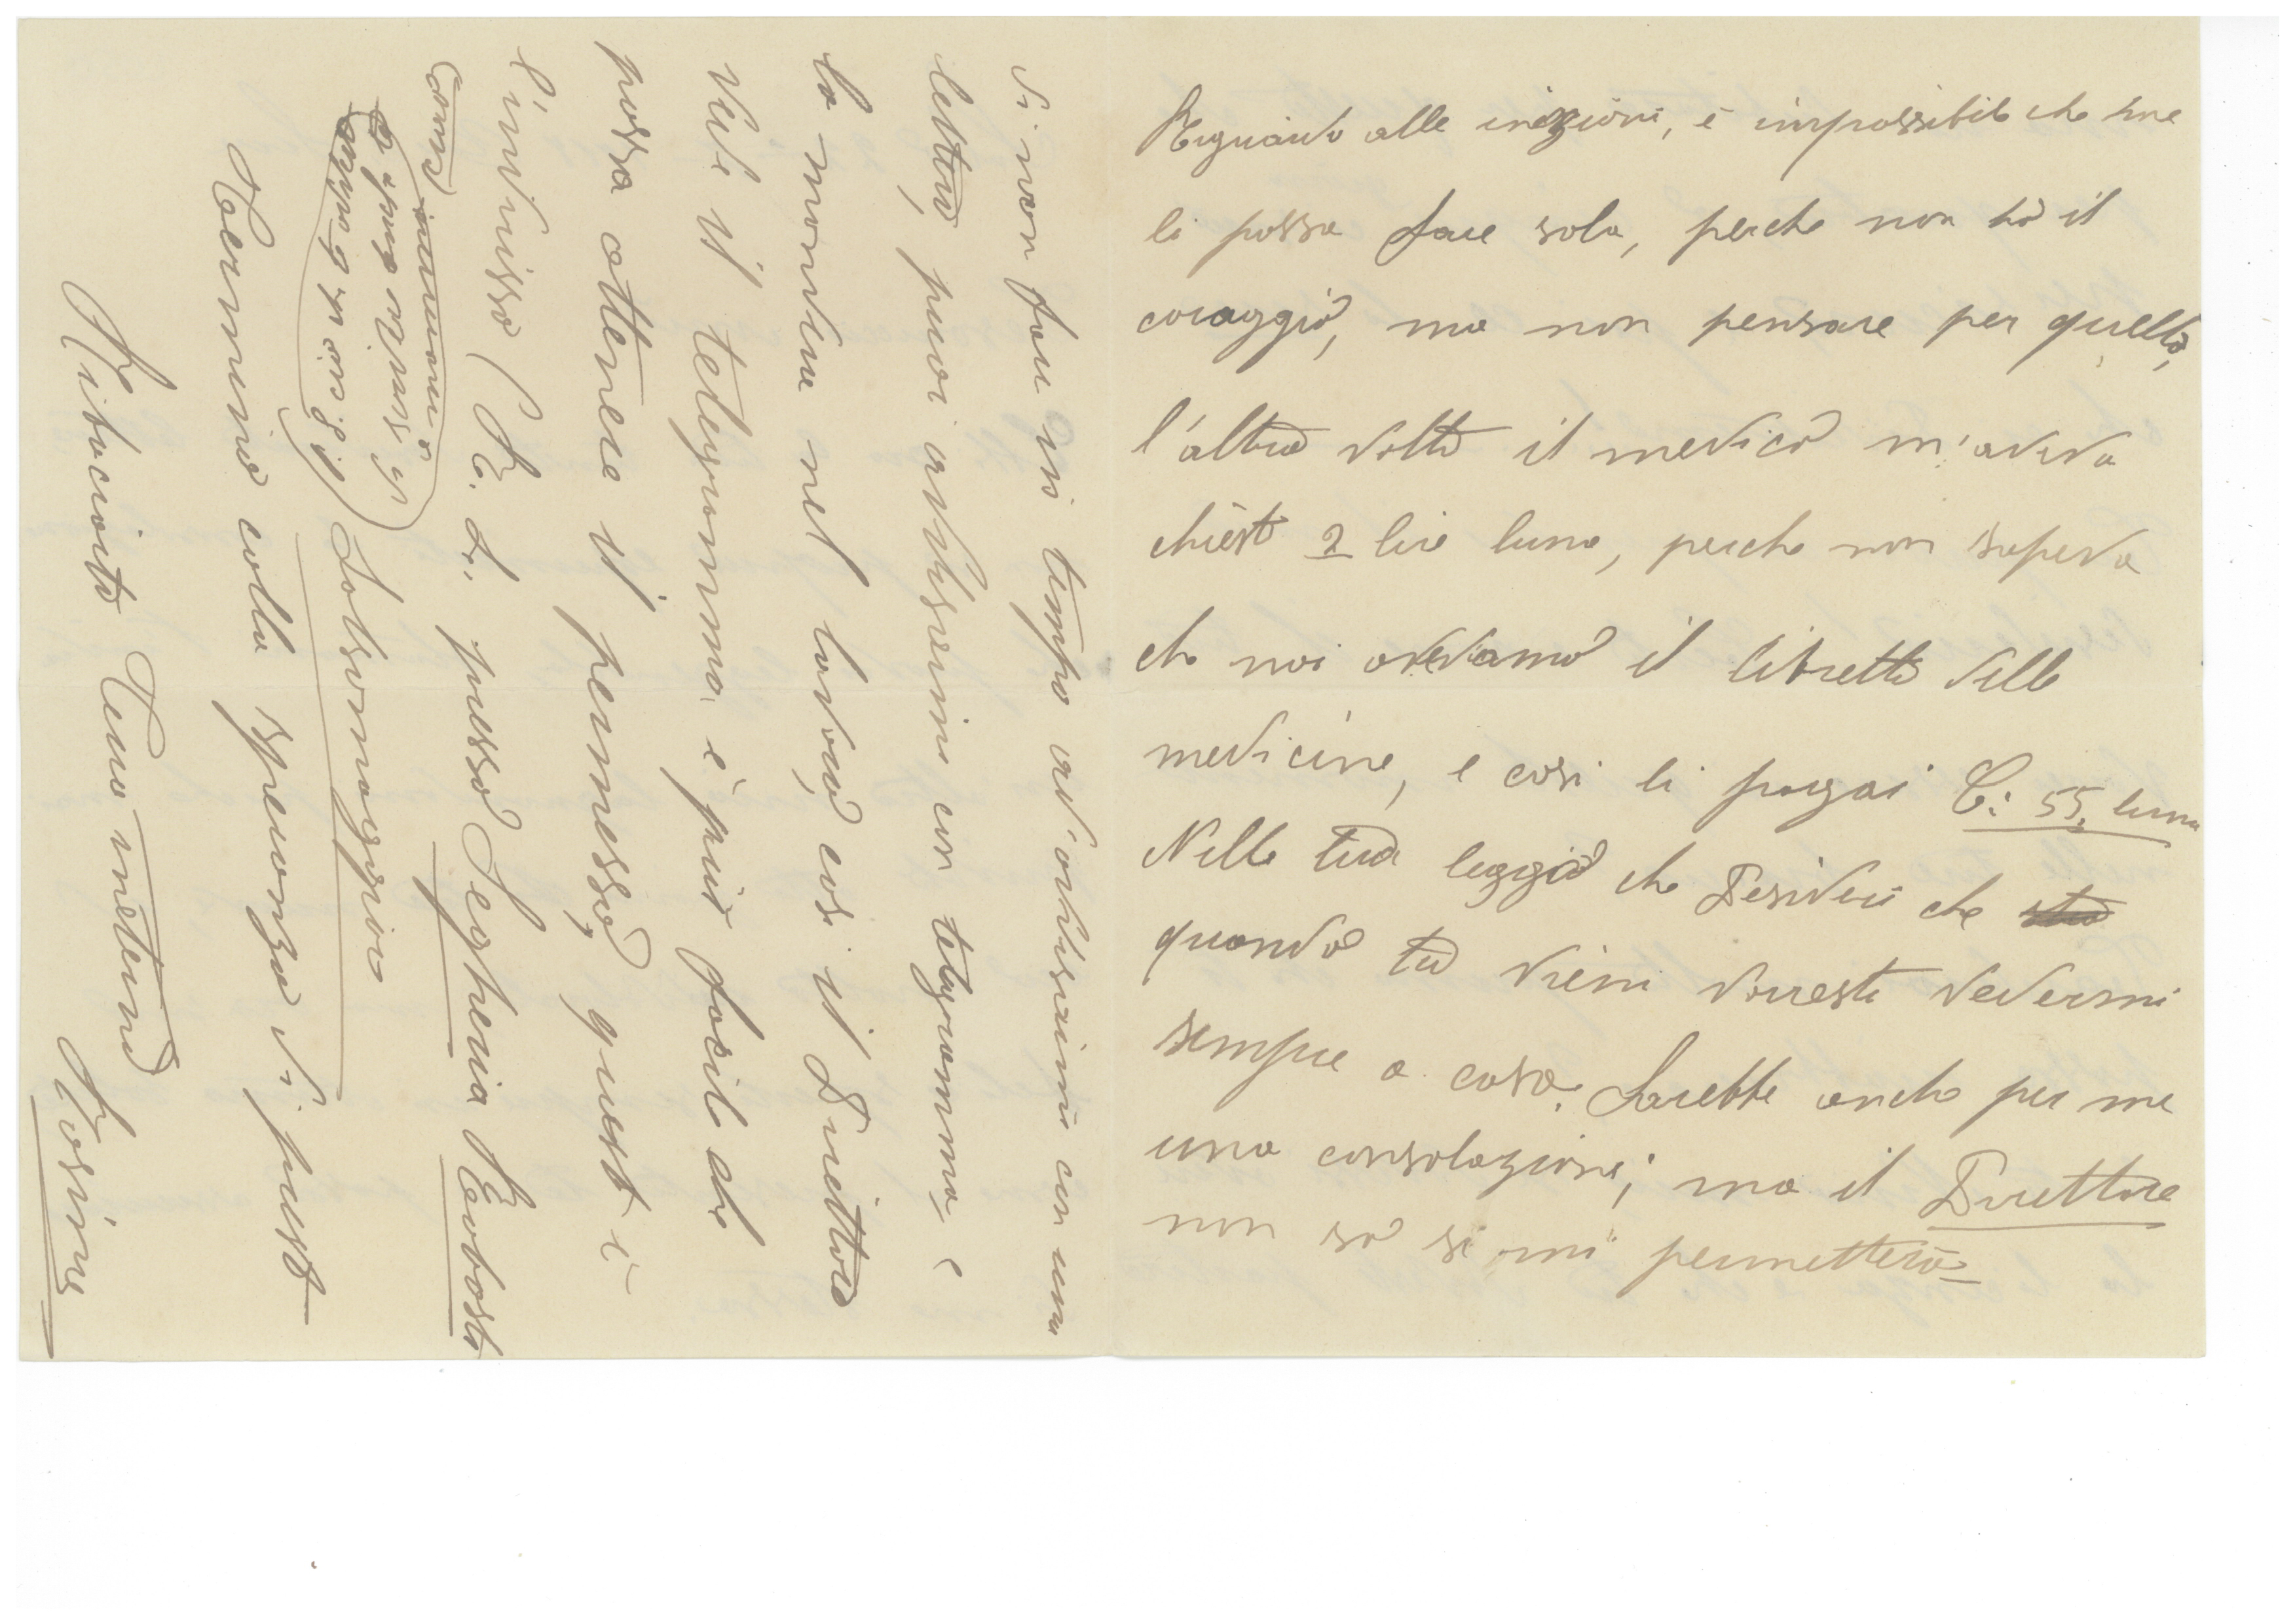 Riguardo alle inezioni, è impossibile che me
li possa fare sola, perche non hò il
coraggio, ma non pensare per quello,
l'altra volta il medico m'aveva
chiesto 2 lire luna, perche non sapeva
che noi avevamo il libretto delle
medicine, e cosi li pagai C. 55. luna
Nelle tua leggiò che Desideri che
quando tu vieni vorresti vedermi
sempre a casa. Sarebbe anche per me
una consolazione; ma il Direttore
non sò se mi permetterà
Se non fai in tempo ad'avvisarmi con una
lettera, puoi avvisarmi con telegramma, e
lo mandi nel lavoro, cosi il Direttore
vede il telegramma, è più facile che
possa ottenere il permesso, questo è
l'indirizzo (R. L. presso Segheria Rebosto
Solsomaggio
Termino colla speranza di presto
Ribaciarti Tua
Rosina